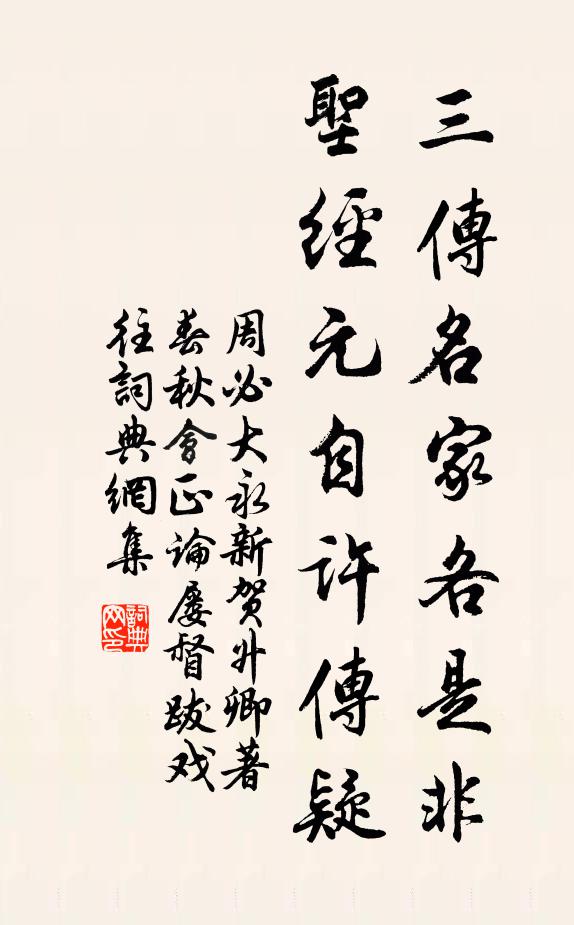 三傳名家各是非
聖經元自許傳疑
周必大永新賀升卿著
春秋會正論屡督跋戏
往詞典網集
詞典
网印